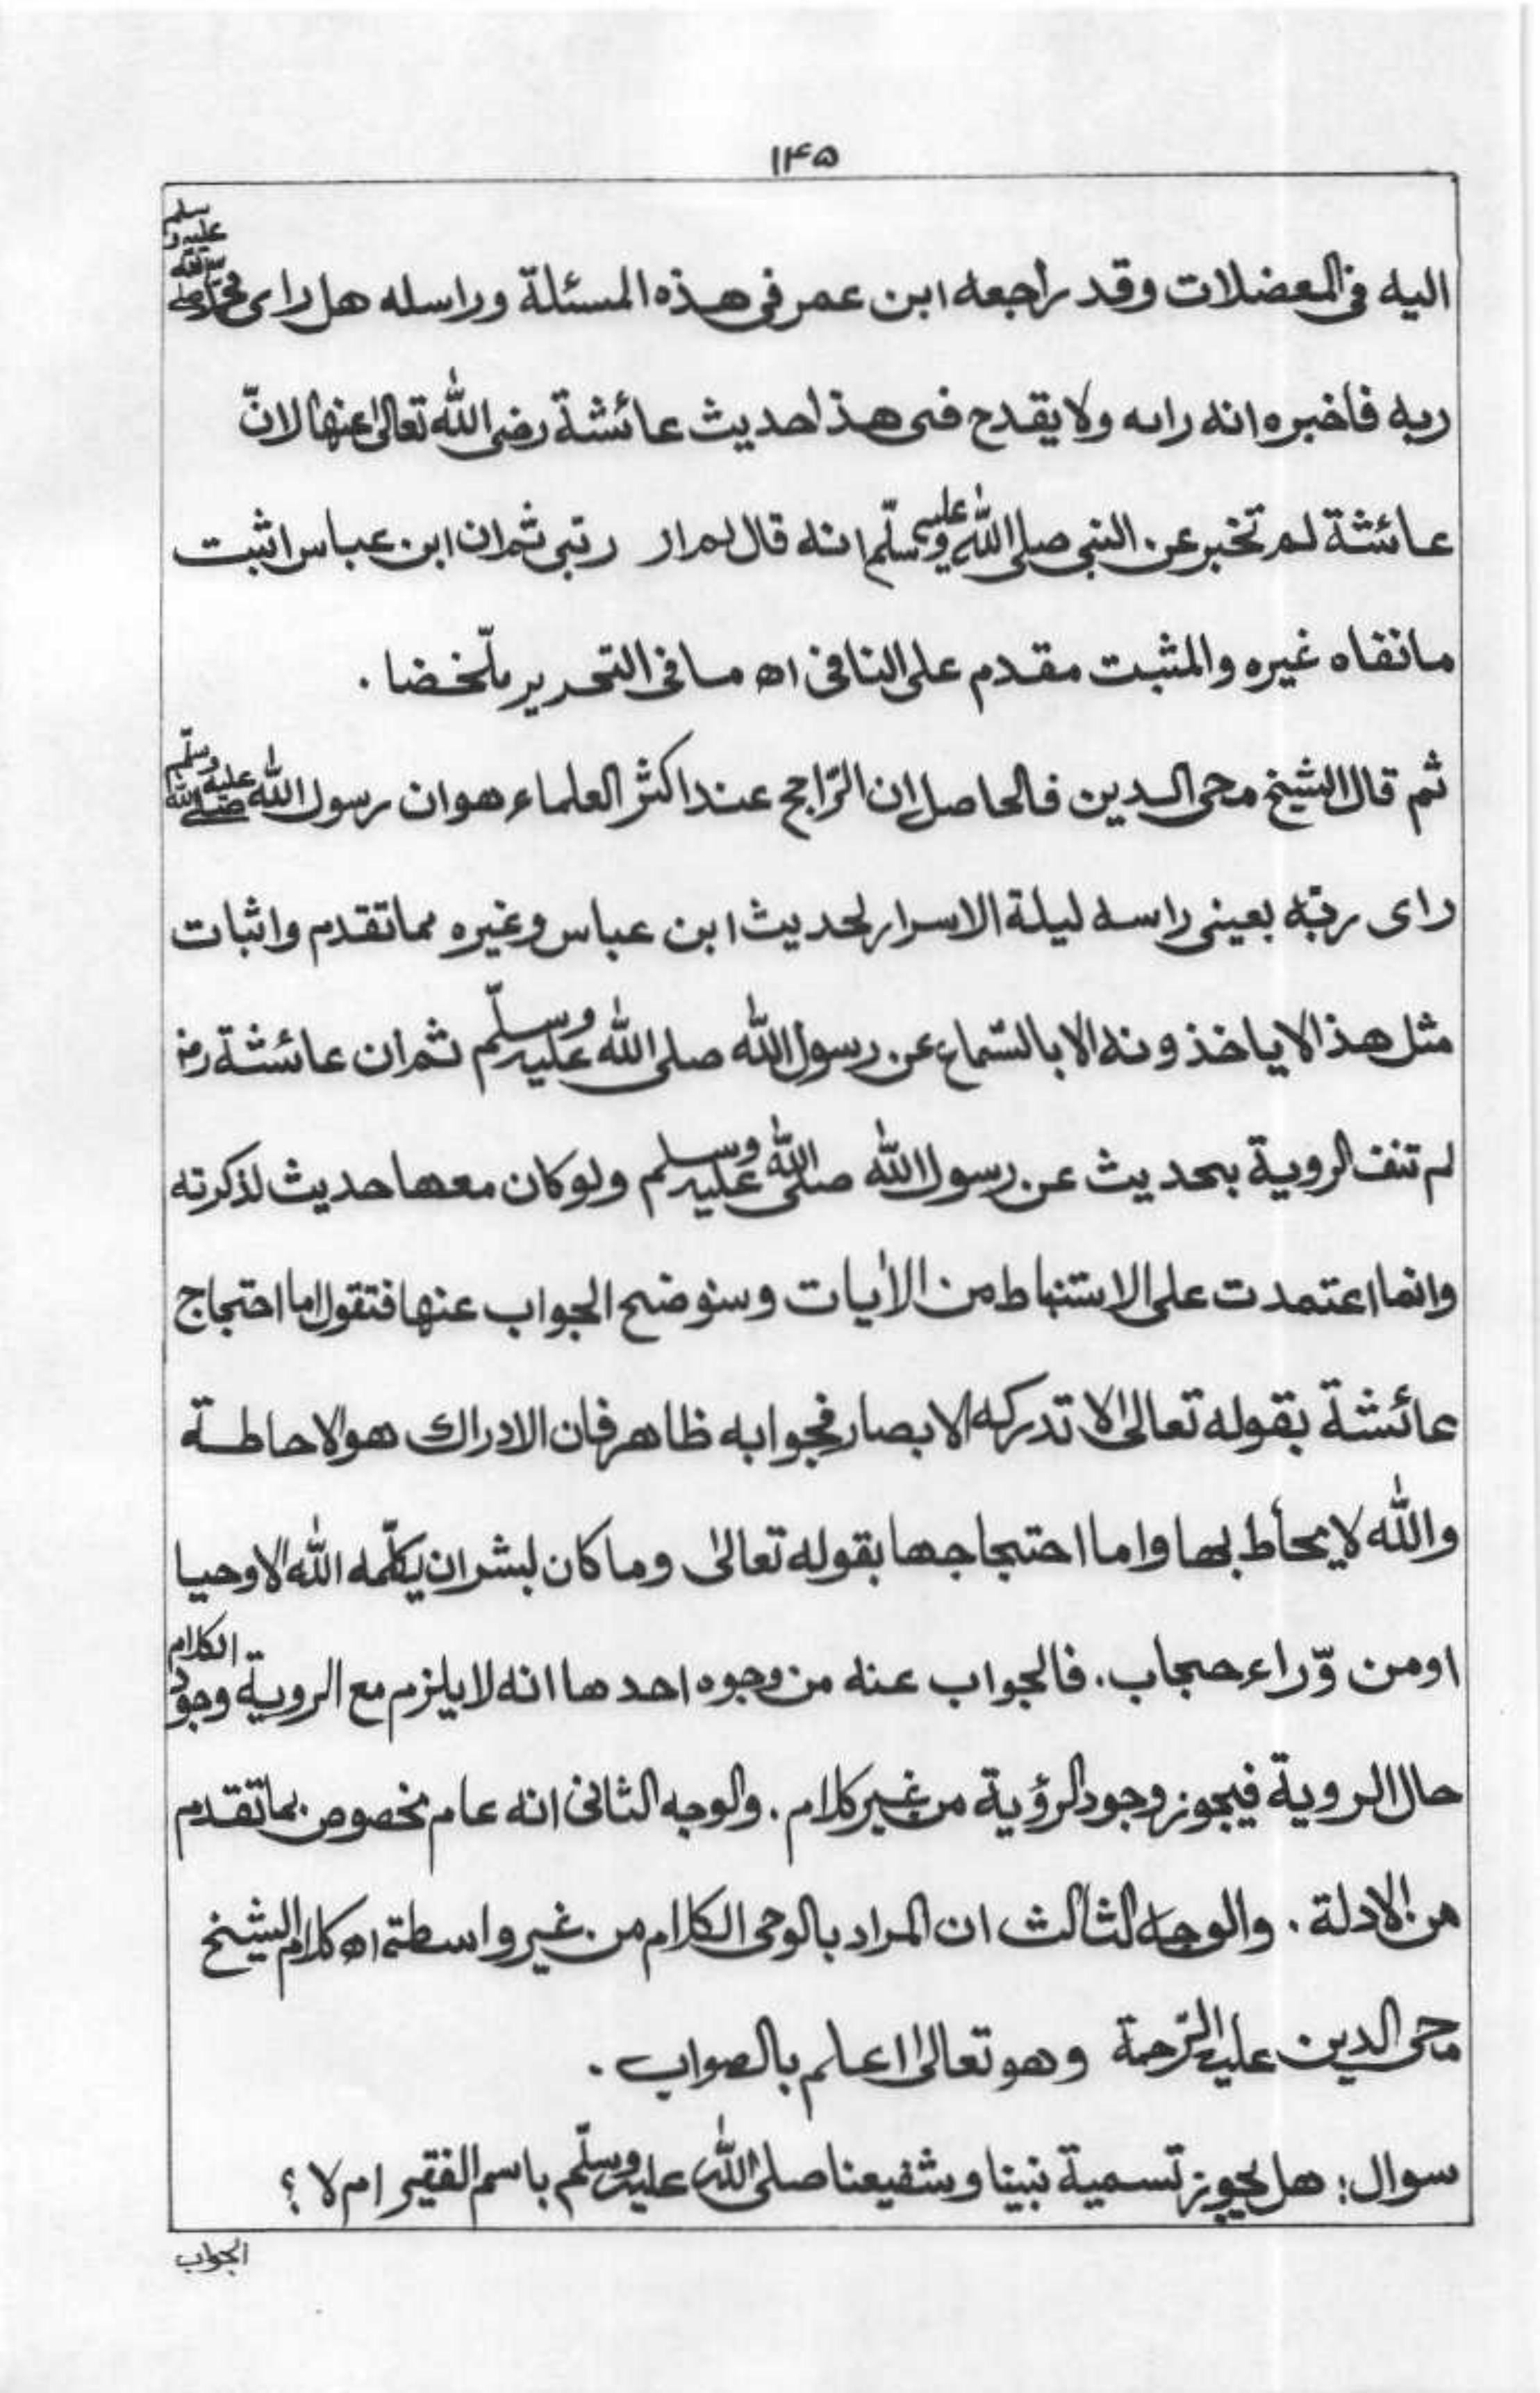 ١٤٥
اليه فى المعضلات وقد راجعه ابن عمر فى هذه المسئلة وراسله هل راى محمد صلى الله عليه وسلم
ربه فاخبره انه راه ولا يقدح فى هذا حديث عائشة رضى الله تعالىٰ عنها لانّ
عائشة لم تخبر عن النبى صلى الله عليه وسلّم انه قال لم ار ربّى ثم ان ابن عباس اثبت
مانفاه غيره والمثبت مقدم على النافى اه ما فى التحرير ملّخضا .
ثم قال الشيخ محى الدين فالحاصل ان الرّاجح عند اكثر العلماء هو ان رسول الله صلى الله عليه وسلّم
راى ربّه بعينى راسه ليلة الاسرار لحديث ابن عباس وغيره مما تقدم واثبات
مثل هذا لا ياخذونه الا بالسّماع عن رسول الله صلى الله عليه وسلّم ثم ان عائشة رض
لم تنف الروية بحديث عن رسول الله صلى الله عليه وسلم ولو كان معها حديث لذكرته
وانما اعتمدت على الاستنباط من الاٰيات وسنوضح الجواب عنها فتقول اما احتجاج
عائشة بقوله تعالىٰ لا تدركه الابصار فجوابه ظاهر فان الادراك هو الاحاطة
والله لا يحاط بها واما احتجاجها بقوله تعالىٰ وما كان لبشر ان يكلّمه الله الا وحيا
او من وّراء حجاب . فالجواب عنه من وجوه احدها انه لا يلزم مع الروية وجود الكلام
حال الروية فيجوز وجود الرؤية من غير كلام . والوجه الثانى انه عام مخصوص بما تقدم
من الادلة . والوجه الثالث ان المراد بالوحى الكلام من غير واسطة اه كلام الشيخ
محى الدين عليه الرّحمة وهو تعالىٰ اعلم بالصواب .
سوال : هل يجوز تسمية نبينا وشفيعنا صلى الله عليه وسلّم باسم الفقير ام لا ؟
الجواب